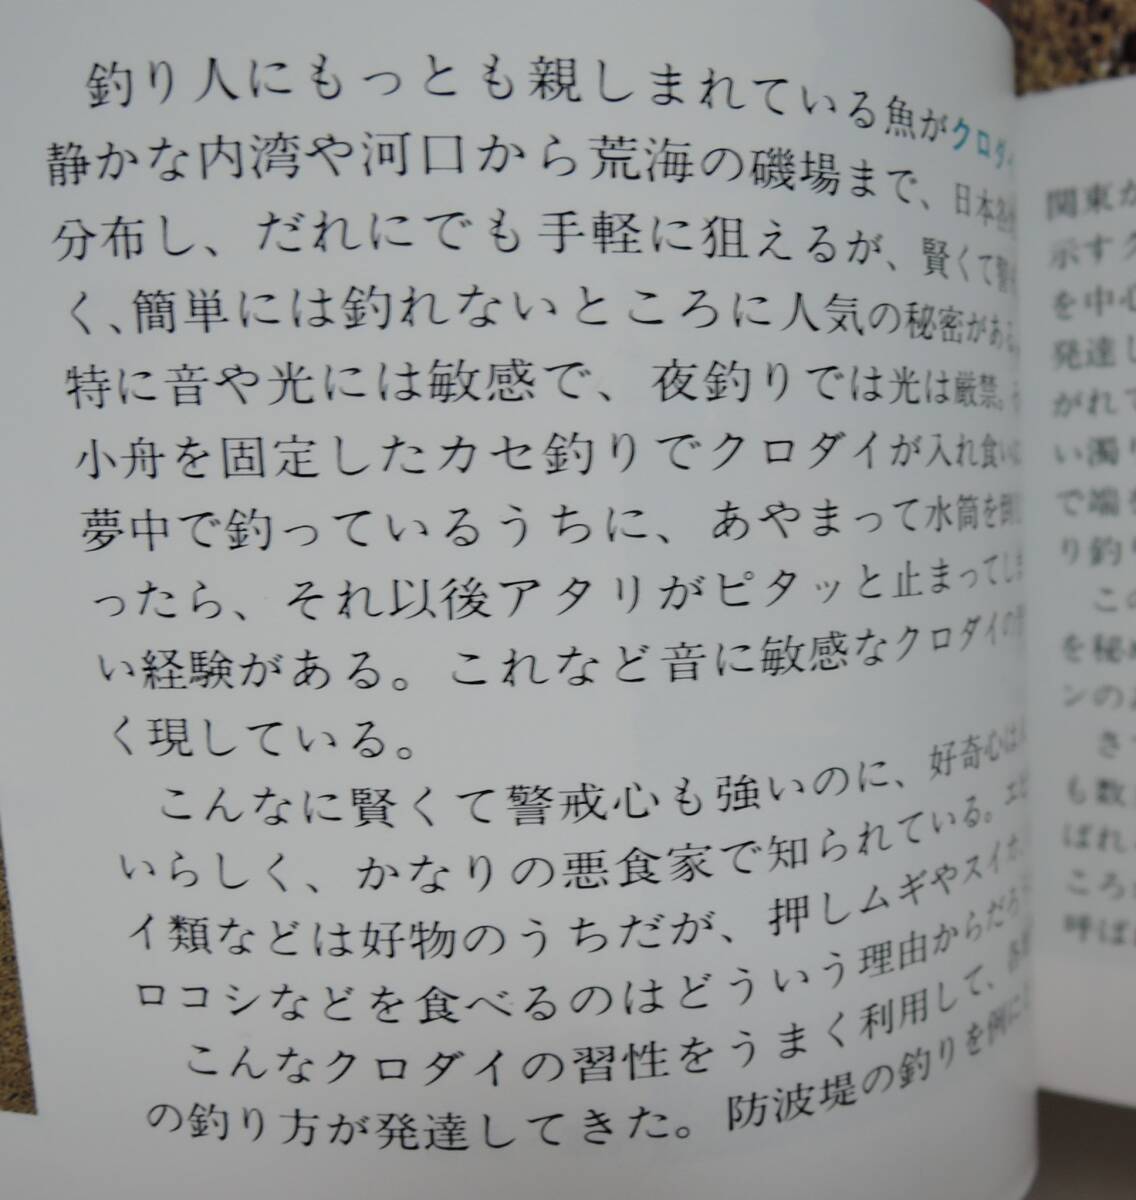 釣り人にもっとも親しまれている魚がクロダ
静かな内湾や河口から荒海の磯場まで、日本各
分布し、だれにでも手軽に狙えるが、賢くて警
く、簡単には釣れないところに人気の秘密がある
特に音や光には敏感で、夜釣りでは光は厳禁。
小舟を固定したカセ釣りでクロダイが入れ食い
夢中で釣っているうちに、あやまって水筒を倒
ったら、それ以後アタリがピタッと止まってし
い経験がある。これなど音に敏感なクロダイの
く現している。
こんなに賢くて警戒心も強いのに、好奇心は
いらしく、かなりの悪食家で知られている。エ
イ類などは好物のうちだが、押しムギやスイカ
ロコシなどを食べるのはどういう理由からだろ
こんなクロダイの習性をうまく利用して、各
の釣り方が発達してきた。防波堤の釣りを例に
関東か
示すク
を中心
発達し
がれて
い濁り
で端を
り釣り
この
を秘め
ンのよ
さて
も数
ばれ
ころ
呼ば